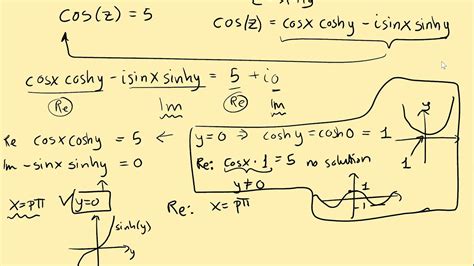 cos(z) = 5
cos(z) = cosx coshy - i sinx sinhy
cosx coshy - i sinx sinhy = 5 + i0
Re Im Re Im
Re cosx coshy = 5
Im -sinx sinhy = 0
y=0 ⇒ coshy = cosh0 = 1
Re: cosx · 1 = 5 no solution
y≠0
x=pπ √ y=0
Re: x=pπ
sinh(y)
y
y
1
1
-1